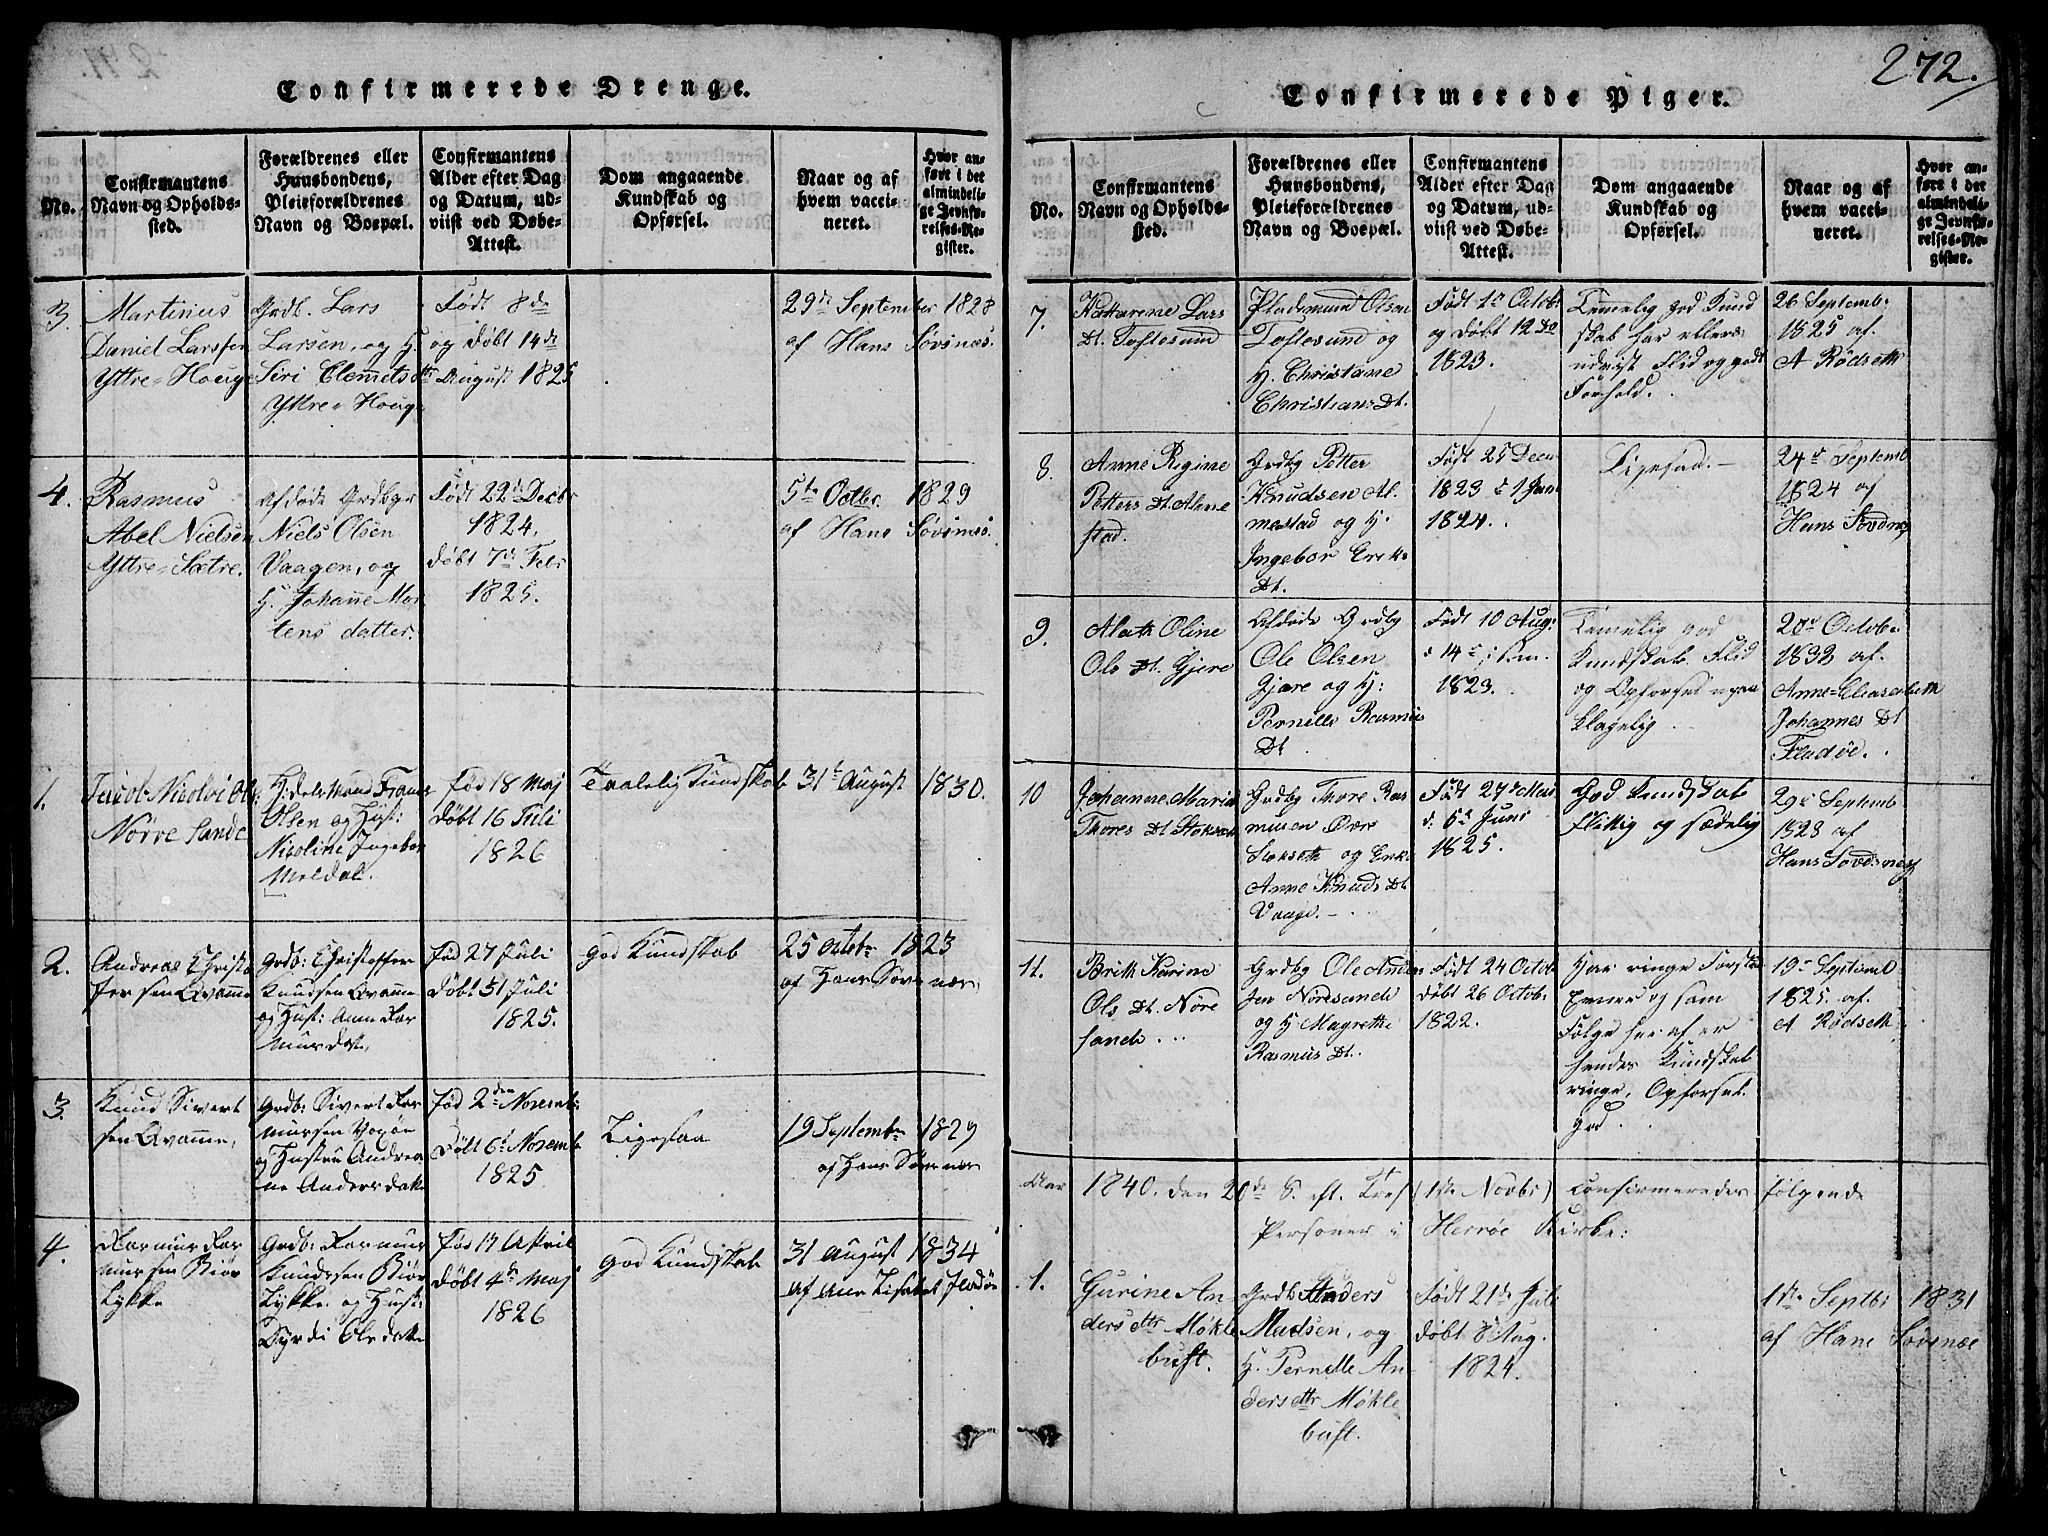 272.
Confirmerede Drenge.
No.
Confirmantens
Navn og Opholds-
sted.
Forældrenes eller
Huusbondens,
Pleieforældrenes
Navn og Boepæl.
Confirmantens
Alder efter Dag
og Datum, ud-
viist ved Døbe-
Attest.
Dom angaaende
Kundskab og
Opførsel.
Naar og af
hvem vacci-
neret.
Hvor an-
ført i det
almindeli-
ge Jevnfø-
relses-Re-
gister.
3.
Martinus
Daniel Larssen
Yttre-Houge
Grdb. Lars
Larsen, og H.
Siri Clemetsdtr
Yttre-Houg
Født 8de
og døbt 14de
August 1825
29de September 1828
af Hans Søvsnæs.
4.
Rasmus
Abel Nielsen
Yttre-Sætre.
Afdøde Grdbgr
Niels Olsen
Vaagen, og
H. Johanne Mor
tens datter.
Født 22de Decbr
1824.
døbt 7de Febr
1825.
5te Octbr. 1829
af Hans
1.
Nørve Sande
Olsen og Hust:
Nicoline Ingebor
Meldal.
Fød 18 Maj
Døbt 16 Juli
1826
Taalelig Kundskab
31te August 1830.
2.
Andreas Christo
fersen Qvamme
Grdb: Christoffer
Knudsen Qvamme
og Hust: Anne Ras
mus dat.
Fød 27 Juli
Døbt 31 Juli
1825.
god Kundskab
25 Octobr 1823
af Hans
3.
Knud Sivert
sen Qvamme,
Grdb: Sivert Ras
mussen
og Hustru Andrea
ne Anders dat.
Fød 2den Novemb:
Døbt 6te Novemb
1825
Ligesaa
19 Septembr 1829
af Hans
4.
Rasmus Ras
mussen Biør
lykke
Grdb: Rasmus
Knudsen Biør
lykke og Hust:
Syrdi Ols dat.
Fød 17 April
Døbt 4de Maj
1826
god Kundskab
31 August 1834
af Ane Lisabet Fladøe
Confirmerede Piger.
No.
Confirmantens
Navn og Opholds-
sted.
Forældrenes eller
Huusbondens,
Pleieforældrenes
Navn og Boepæl.
Confirmantens
Alder efter Dag
og Datum, ud-
viist ved Døbe-
Attest.
Dom angaaende
Kundskab og
Opførsel.
Naar og af
hvem vacci-
neret.
Hvor an-
ført i det
almindeli-
ge Jevnfø-
relses-Re-
gister.
7.
Katarene Lars
Dt. Toftesund
Pladsmand Olsen
Toftesund og
H. Christane
Christians Dt.
Født 1te Octob:
og døbt 12 Do
1823.
Temmelig god Kund
skab har ellers
udvist Flid og godt
Forhold.
26 Septemb:
1825 af.
A Rødseth
8.
Anne Regine
Petters Dt. Alme
stad.
Grdbg Petter
Knudsen Al
mestad og H.
Ingebor Erik
Dt.
Født 25 Decem
1823 d: 1 Jan
1824.
Ligesaa.
24de Septemb
1824 af
Hans Søvdnes
9.
Alath Oline
Ols Dt. Gjere
Afdøde Grdbg
Ole Olsen
Gjære og H:
Pernelle Rasmus
Dt.
Født 10 Aug:
d 14de
1823.
Temmelig god
Kundskab Flid
og Opførsel upaa
klagelig.
20de Octob:
1832 af.
Anne-Eliaserbeth
Johannes Dt
Fladøe.
10
Johanne Maria
Thores Dt Stokseth
Grdbg Thore Ras
musen Øvre
Stokseth og Enk:
Anne Knuds Dt
Vaage.
Født 27de Mai
d: 5te Juni
1825.
God Kundskab
flittig og sædelig
29de Septemb
1828 af
Hans Søvdsnes
11.
Brith Karine
Ols Dt. Nøre
sande
Grdbg Ole Ander
sen Nøresande
og H Magrethe
Rasmus Dt.
Født 24 Octob
døbt 26 Octob:
1822.
Har ringe Forstands
Evner og som
Følge her af er
hendes Kundskab
ringe, Opførsel
god.
19de Septemb
1825. af.
A Rødseth
Aar 1840. den 20de S. eft. Tref (1ste Novbr) confirmeredes følgende
Personer i Herrøe Kirke:
1.
Gurine An
dersdtr Møkle
bust.
Grdb: Anders
Madsen, og
H. Pernelle An
dersdtr Møkle
bust.
Født 21de Juli
døbt 8de Aug.
1824.
1ste Septbr 1831
af Hans Søvsnæs